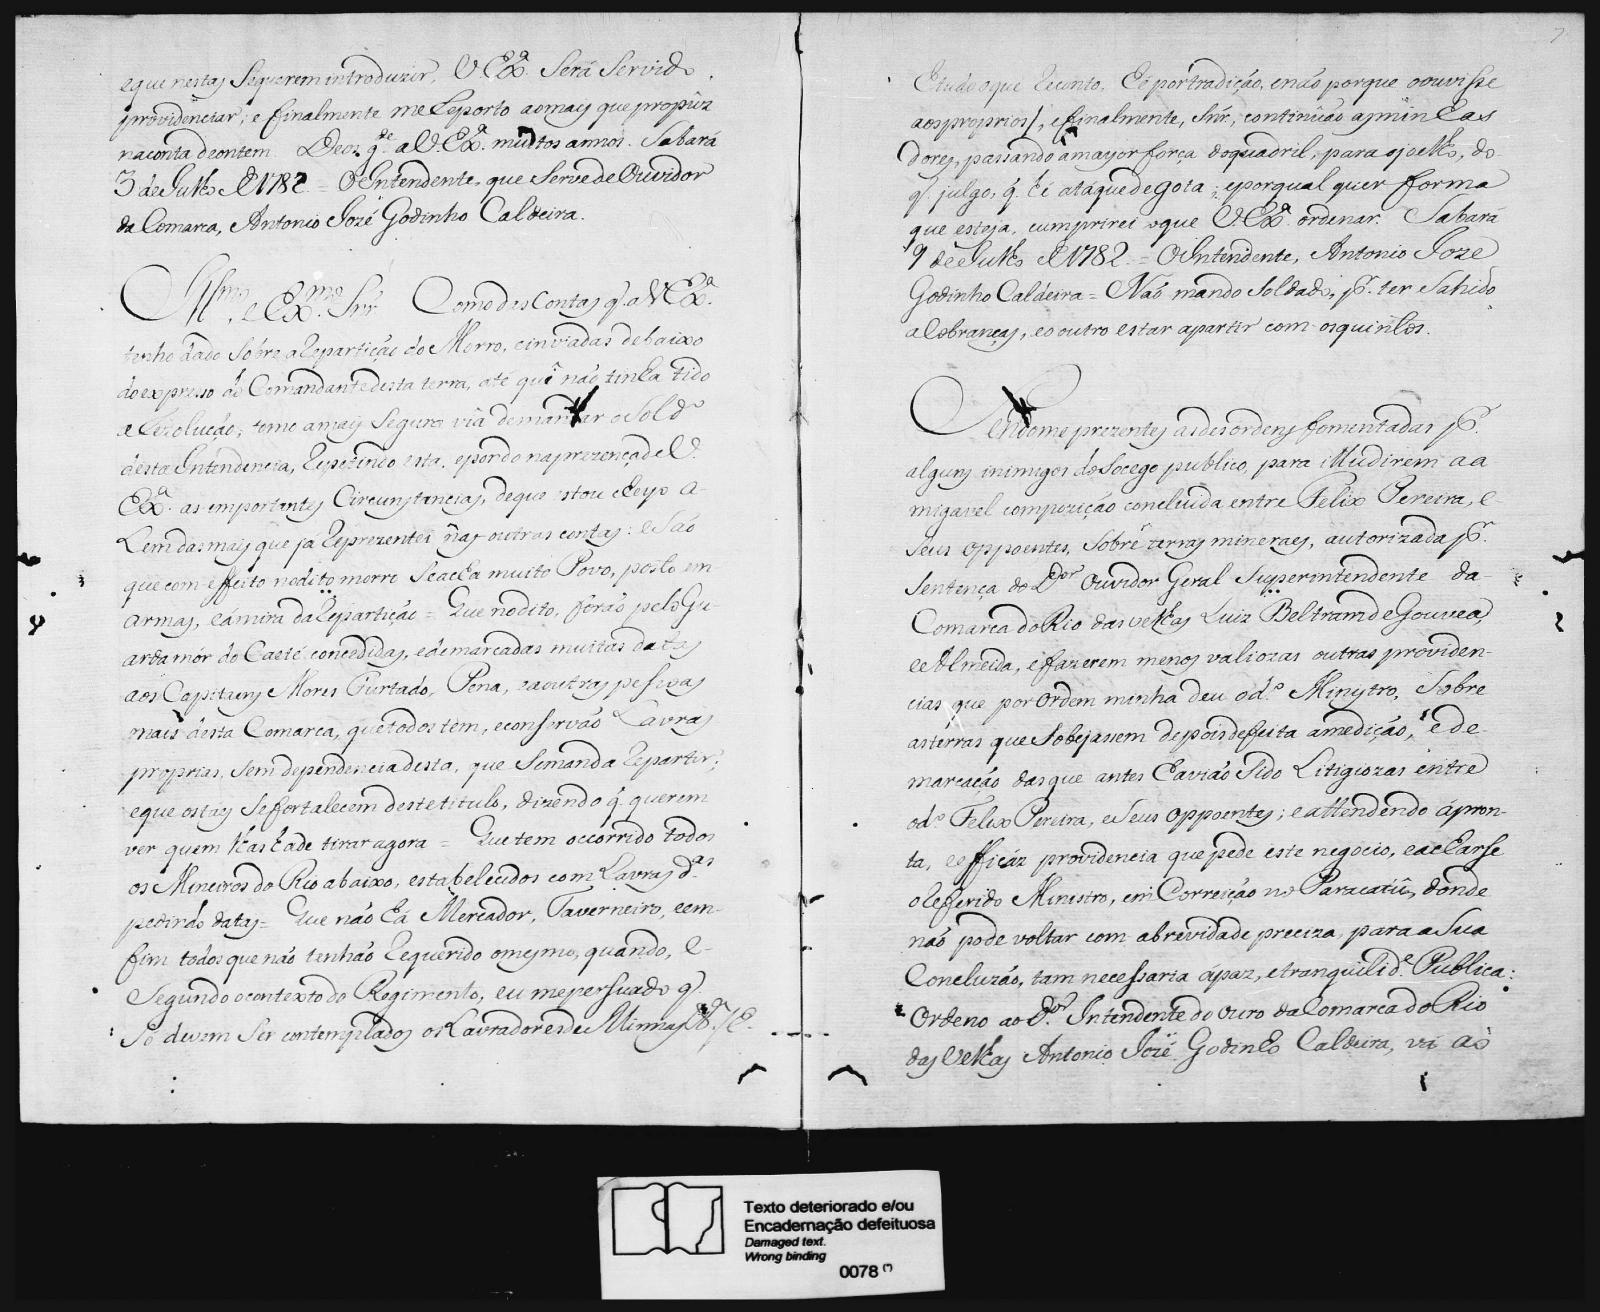 e que nestas se querem introduzir, V Exª. Será Servido
providenciar; e finalmente me Reporto ao mais que propuz
na conta de ontem. Deos gᵈᵉ a V. Exª. muitos annos. Sabará
3 de Julho de 1782 = O Intendente, que Serve de Ouvidor
da Comarca, Antonio Jozé Godinho Caldeira.
Illmº, e Exmº. Snr̃ Como das Contas q̃ a V Exª.
tenho dado Sobre a Repartição do Morro, enviadas debaixo
do expresso do Comandante desta terra, até qui não tinha tido
a Rezolução; tomo a mais Segura via de mandar o Soldº
desta Intendencia, Repetindo esta, e pondo na prezença de V.
Exª. as importantes Circunstancias, de que estou cheyo a-
Lem das mais que já Reprezentei nas outras contas: e São
que com effeito no dito morro Se acha muito Povo, posto em
armas, e á mira da Repartição = Que no dito, forão pelo Gu-
arda mór do Caeté concedidas, e demarcadas muitas datas
aos Capitaens Mores Furtado, Pena, e a outras pessoas
mais desta Comarca, que todos tem, e conservão Lavras
proprias, Sem dependencia desta, que Se manda Repartir;
e que estas Se fortalecem deste titulo, dizendo q̃ querem
ver quem lhas hade tirar agora = Que tem occorrido todos
os Mineiros do Rio abaixo, estabelecidos com Lavras dªˢ
pedindo datas = Que não há Mercador, Taverneiro, e em-
fim todos que não tenhão Requerido o mesmo, quando, e
Segundo o contexto do Regimento, eu me persuado q̃
Só devem Ser contemplados os Lavradores de Minnas
E tudo o que Reconto, hé por tradição, e não porque o ouvisse
aos proprios/, e finalmente, Snr̃, continuão as minhas
dores, passando a mayor força do quadril, para o joelho, do
q̃ julgo, q̃ hé ataque de gota; e por qual quer forma
que esteja, cumprirei o que V. Exª. ordenar. Sabará
9 de Julho de 1782 = O Intendente, Antonio Joze
Godinho Caldeira = Não mando Soldado, pʳ. ter Sahido
a Cobranças, e o outro estar a partir com os quintos.
Sendome prezentes as desordens fomentadas pʳ.
alguns inimigos do Socego publico, para illudirem a a
migavel compozição concluida entre Felix Pereira, e
Seus oppoentes, Sobre terras mineraes, autorizada pʳ.
Sentença do Dºʳ Ouvidor Geral Superintendente da
Comarca do Rio das velhas Luiz Beltram de Gouvea,
e Almeida, e fazerem menos valiozas outras providen-
cias que por ordem minha deu o dº. Ministro, Sobre
as terras que Sobejassem depois de feita a medição, e de-
marcação das que antes havião Sido Litigiozas entre
o dº. Felix Pereira, e Seus oppoentes; e attendendo á pron-
ta, e efficáz providencia que pede este negocio, e acharse
o Referido Ministro, em Correição no Paracatú, donde
não pode voltar com a brevidade preciza, para a Sua
Concluzão, tam necessaria á paz, e tranquilidᵉ. Publica:
Ordeno ao Dºʳ. Intendente do Ouro da Comarca do Rio
das Velhas Antonio Jozé Godinho Caldeira, vá ao
Texto deteriorado e/ou
Encadernação defeituosa
Damaged text.
Wrong binding
0078